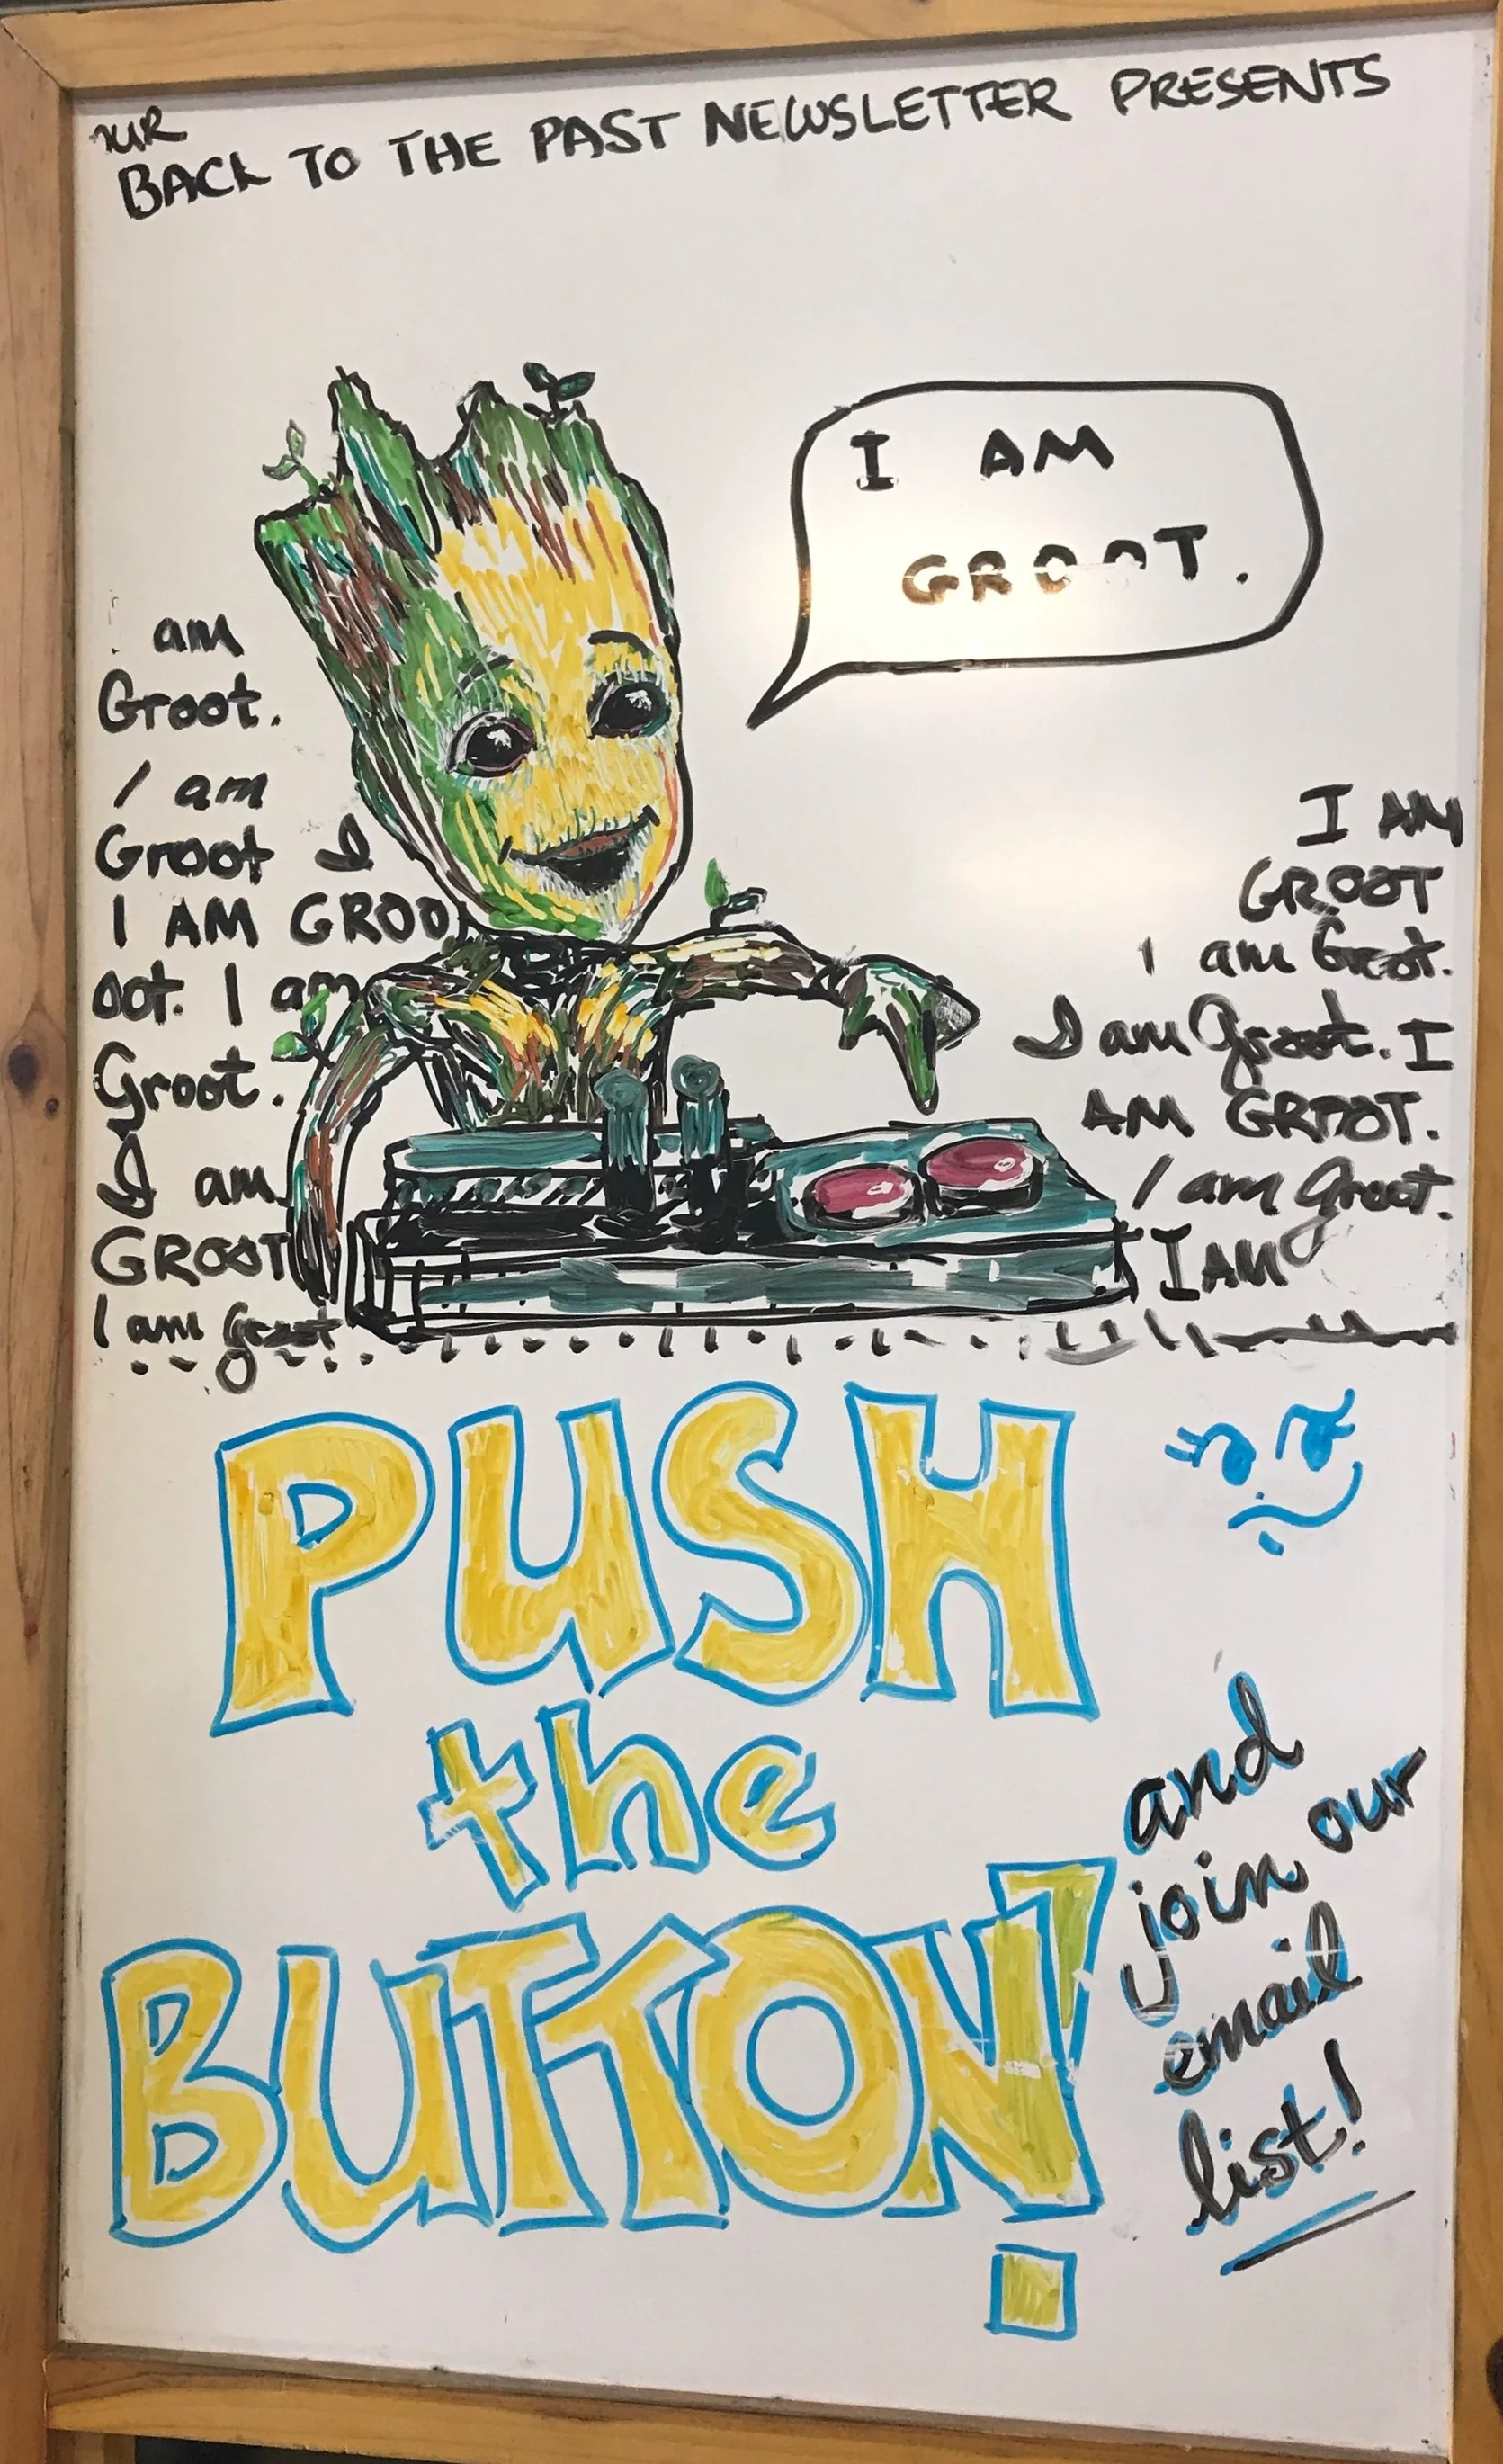 OUR
BACK TO THE PAST NEWSLETTER PRESENTS
I AM
GROOT.
am
Groot.
I am
Groot I
I AM GROO
oot. I am
Groot.
I am
GROOT
I am Groot
I AM
GROOT
I am Groot.
I am Groot. I
AM GROOT.
I am Groot.
I AM
PUSH
the
BUTTON!
and
join our
email
list!